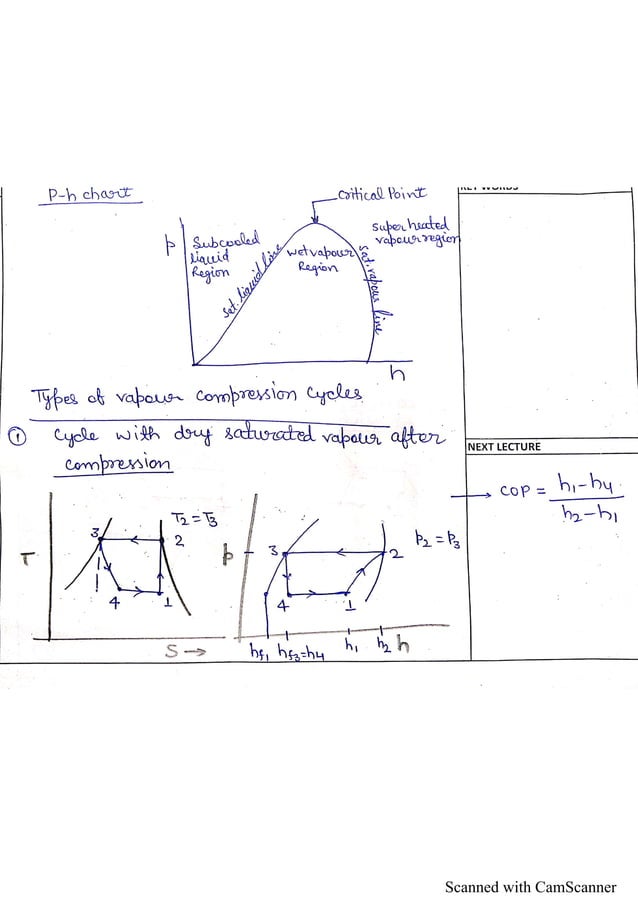 P-h chart
Critical Point
KEY WORDS
p
Subcooled
liquid
Region
Sat. liquid line
wet vapour
Region
Super heated
vapour region
Sat. vapour line
h
Types of vapour compression cycles
① Cycle with dry saturated vapour after
compression
NEXT LECTURE
→ COP = h1-h4
h2-h1
T2 = T3
3
2
T
4
1
S →
p
3
2
p2 = p3
4
1
hf1 hf3=h4 h1 h2 h
Scanned with CamScanner